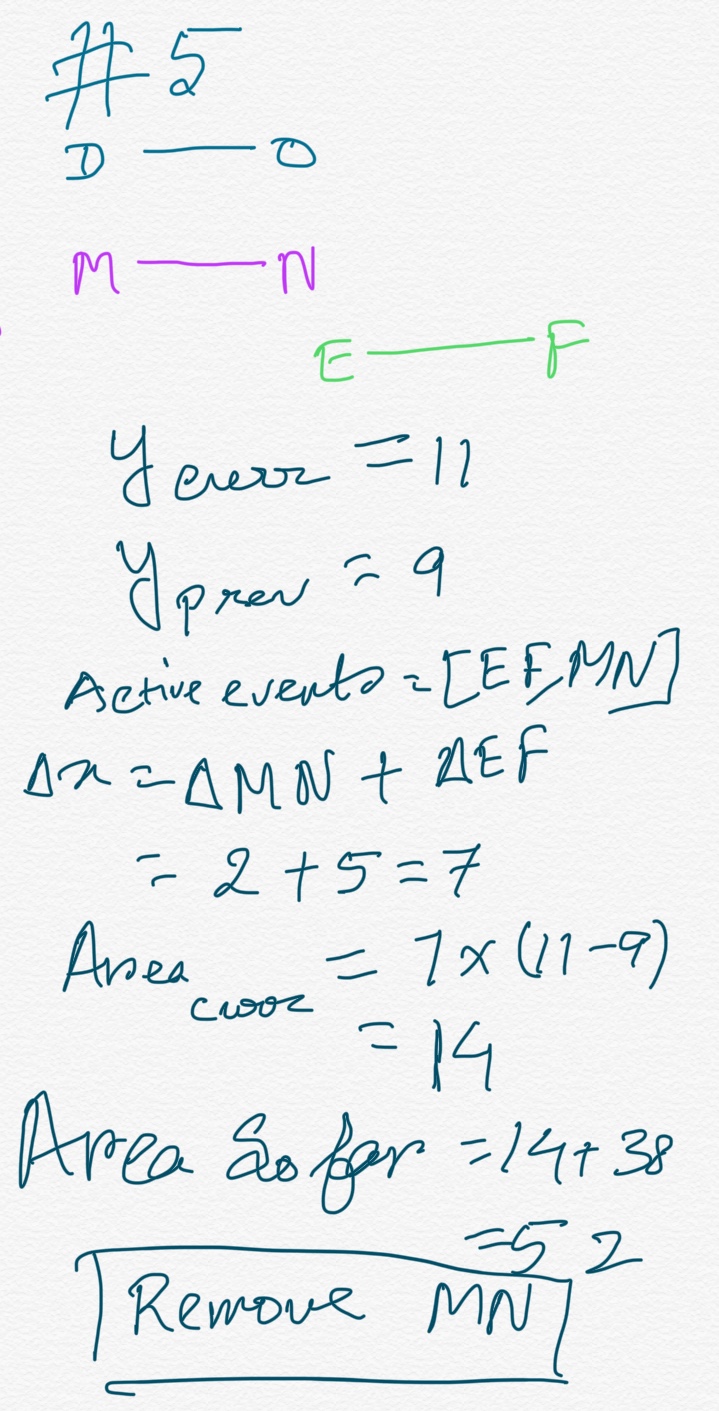 # 5
D — O
M — N
E — F
y curr = 11
y prev = 9
Active events = [EF, MN]
Δx = ΔMN + ΔEF
= 2 + 5 = 7
Area curr = 7 × (11 - 9)
= 14
Area So far = 14 + 38
= 52
Remove MN